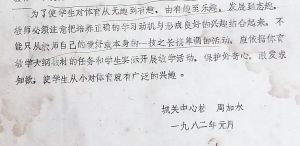 为了使学生对体育从无趣到有趣，由有趣至乐趣，发展到志趣，
教师必须注意把培养正确的学习动机与形成良好的兴趣结合起来。不
能只从教师自己的爱好或本身的一技之长搞单调的活动。应依据体育
教学大纲教材的任务和学生实际开展教学活动，保护好奇心，激发求
知欲，使学生从小对体育就有广泛的兴趣。
城关中心校 周加水
一九八二年元月